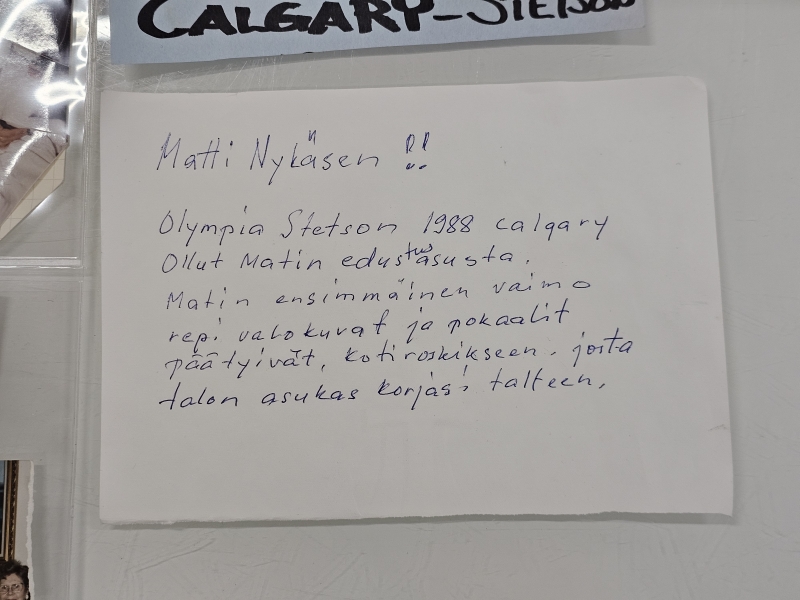 CALGARY-STETSON
Matti Nykäsen !!
Olympia Stetson 1988 Calgary
Ollut Matin edustusasusta.
Matin ensimmäinen vaimo
repi valokuvat ja pokaalit
päätyivät, kotiroskikseen. josta
talon asukas korjasi talteen.